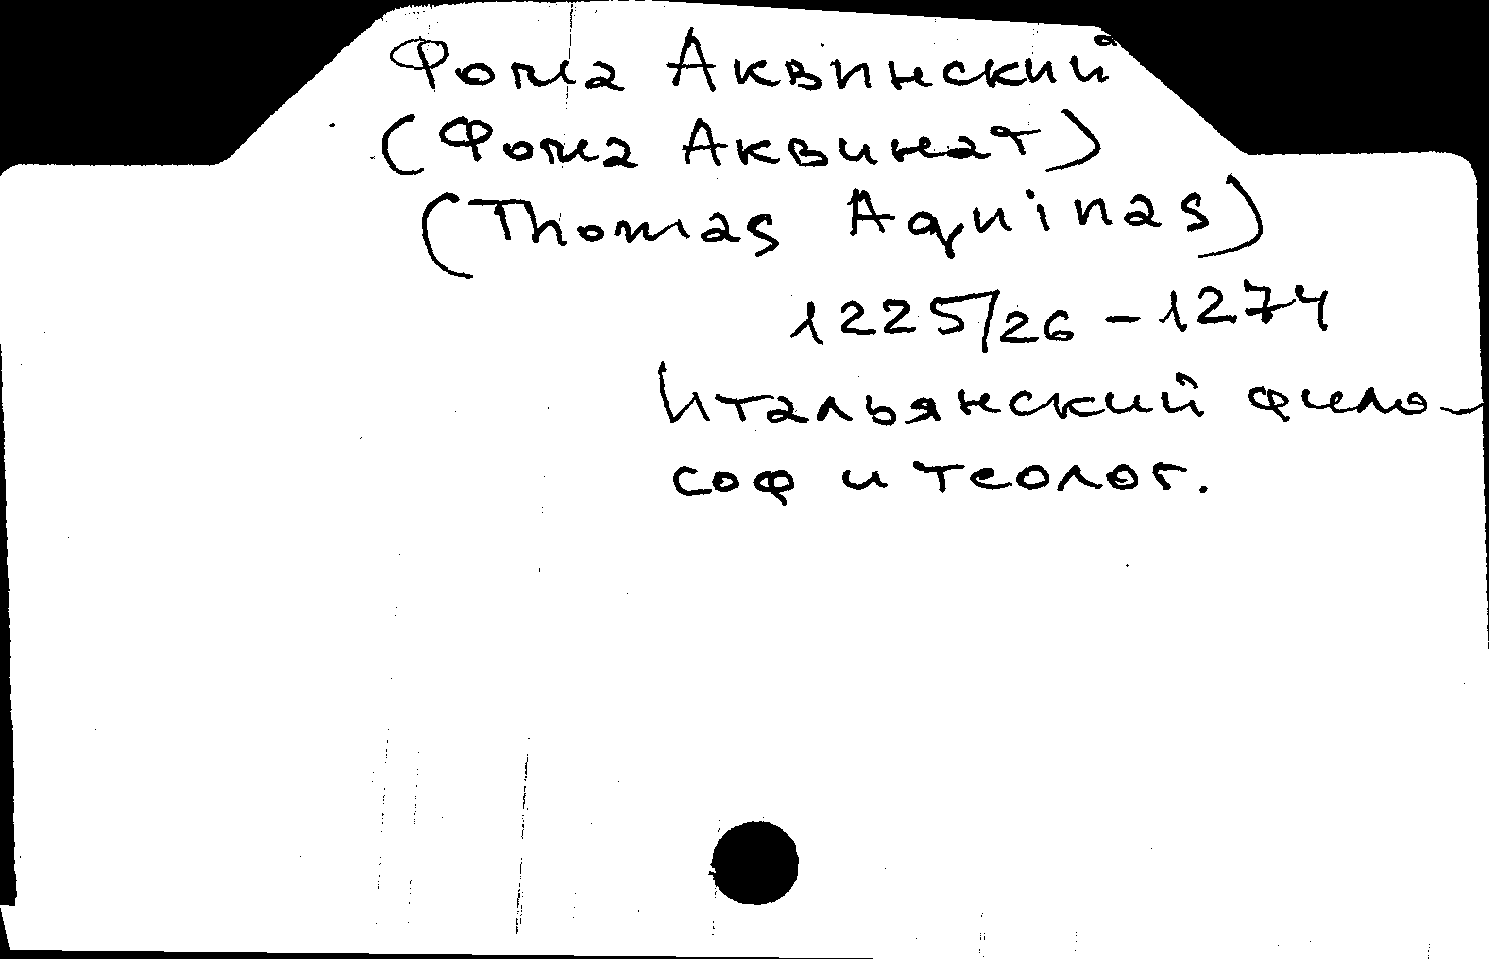 Фома Аквинский
(Фома Аквинат)
(Thomas Aquinas)
1225/26 – 1274
Итальянский фило-
соф и теолог.